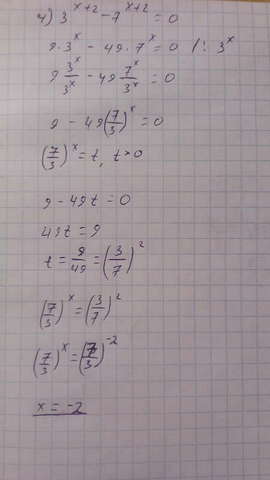 4) 3^(x+2) - 7^(x+2) = 0
9·3^x - 49·7^x = 0 /: 3^x
9 3^x/3^x - 49 7^x/3^x = 0
9 - 49(7/3)^x = 0
(7/3)^x = t, t>0
9 - 49t = 0
49t = 9
t = 9/49 = (3/7)^2
(7/3)^x = (3/7)^2
(7/3)^x = (7/3)^-2
x = -2